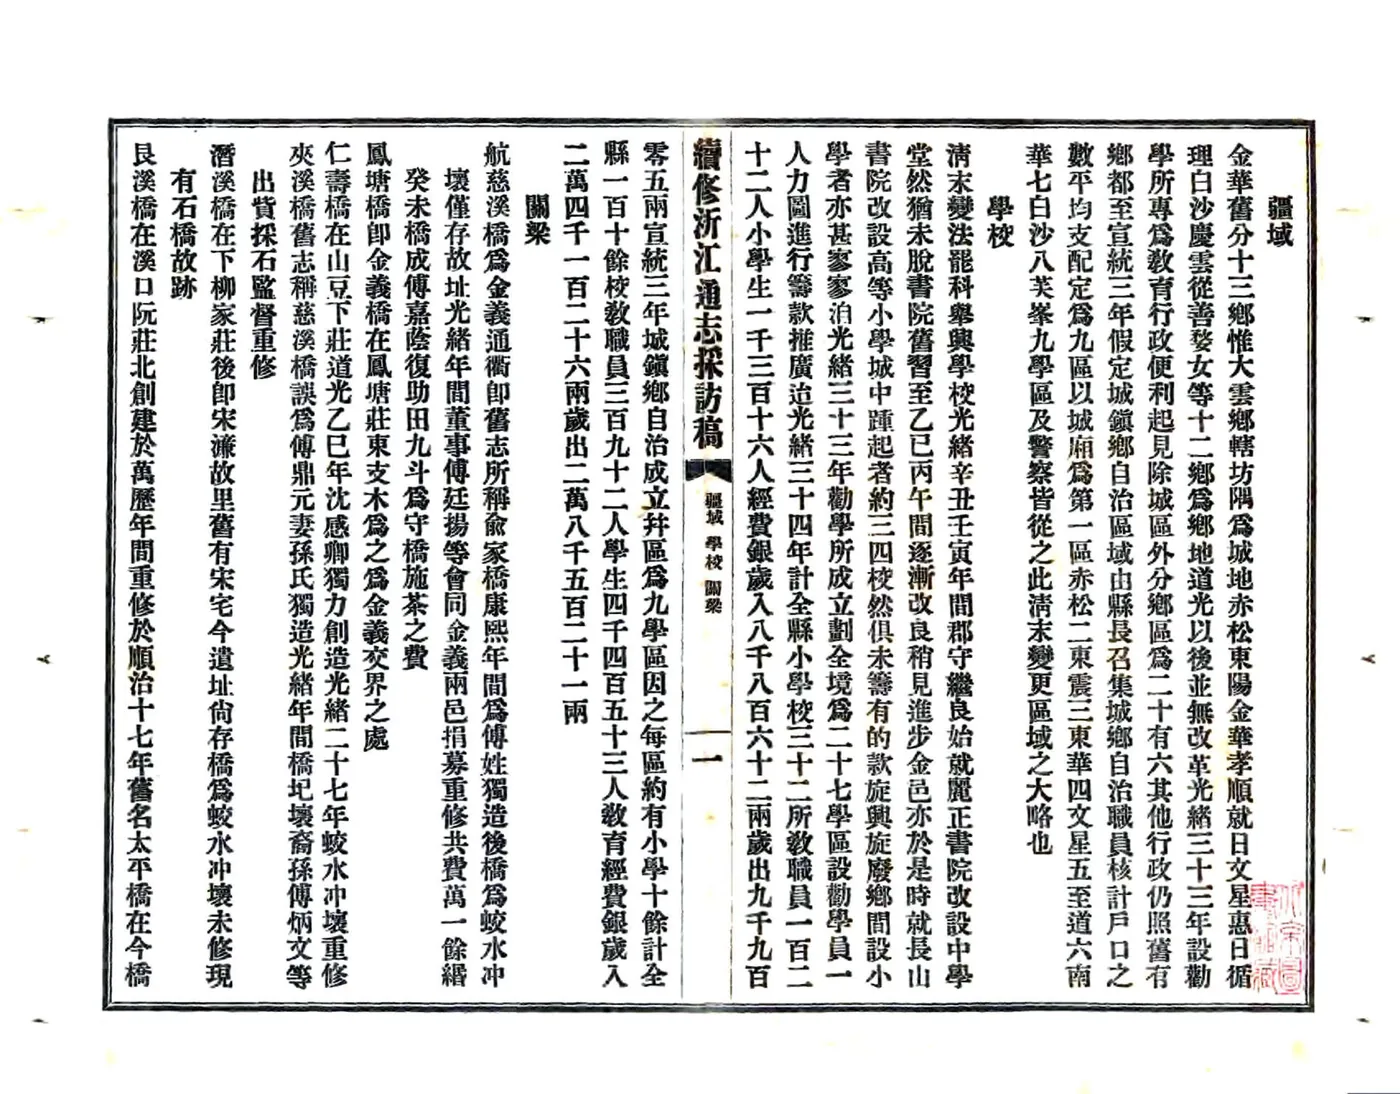 疆域
金華舊分十三鄉惟大雲鄉轄坊隅爲城地赤松東陽金華孝順就日文星惠日循
理白沙慶雲從善婺女等十二鄉爲鄉地道光以後並無改革光緒三十三年設勸
學所專爲敎育行政便利起見除城區外分鄉區爲二十有六其他行政仍照舊有
鄉都至宣統三年假定城鎭鄉自治區域由縣長召集城鄉自治職員核計戶口之
數平均支配定爲九區以城廂爲第一區赤松二東震三東華四文星五至道六南
華七白沙八芙峯九學區及警察皆從之此淸末變更區域之大略也
學校
淸末變法罷科舉興學校光緒辛丑壬寅年間郡守繼良始就麗正書院改設中學
堂然猶未脫書院舊習至乙巳丙午間逐漸改良稍見進步金邑亦於是時就長山
書院改設高等小學城中踵起者約三四校然俱未籌有的款旋興旋廢鄉間設小
學者亦甚寥寥洎光緒三十三年勸學所成立劃全境爲二十七學區設勸學員一
人力圖進行籌款推廣迨光緒三十四年計全縣小學校三十二所敎職員一百二
十二人小學生一千三百十六人經費銀歲入八千八百六十二兩歲出九千九百
續修浙江通志採訪稿
疆域 學校 關梁
一
零五兩宣統三年城鎭鄉自治成立幷區爲九學區因之每區約有小學十餘計全
縣一百十餘校敎職員三百九十二人學生四千四百五十三人敎育經費銀歲入
二萬四千一百二十六兩歲出二萬八千五百二十一兩
關梁
航慈溪橋爲金義通衢卽舊志所稱俞家橋康熙年間爲傅姓獨造後橋爲蛟水冲
壞僅存故址光緒年間董事傅廷揚等會同金義兩邑捐募重修共費萬一餘緡
癸未橋成傅嘉蔭復助田九斗爲守橋施茶之費
鳳塘橋卽金義橋在鳳塘莊東支木爲之爲金義交界之處
仁壽橋在山豆下莊道光乙巳年沈感卿獨力創造光緒二十七年蛟水冲壞重修
夾溪橋舊志稱慈溪橋誤爲傅鼎元妻孫氏獨造光緒年間橋圮壞裔孫傅炳文等
出貲採石監督重修
潛溪橋在下柳家莊後卽宋濂故里舊有宋宅今遺址尙存橋爲蛟水冲壞未修現
有石橋故跡
艮溪橋在溪口阮莊北創建於萬歷年間重修於順治十七年舊名太平橋在今橋